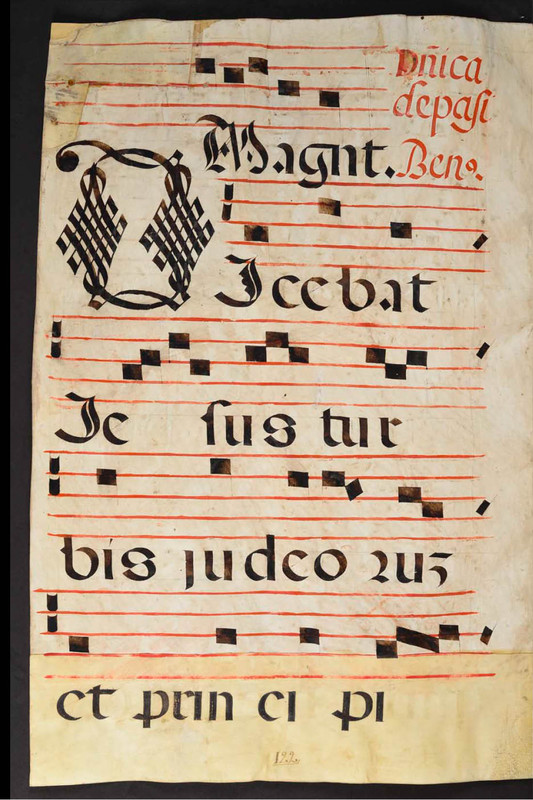 Dñica
de pasi
Magnt. Ben⁰.
DIcebat
Ie sus tur
bis judeo ruʒ
et prin ci pi
122.